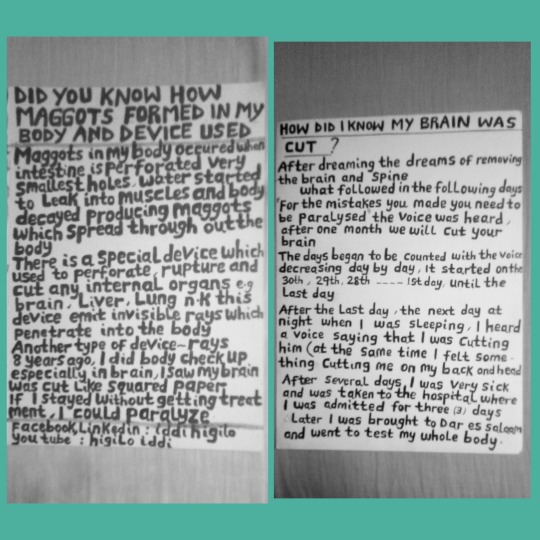 DID YOU KNOW HOW
MAGGOTS FORMED IN MY
BODY AND DEVICE USED
Maggots in my body occured when
intestine is perforated very
smallest holes. Water started
to leak into muscles and body
decayed producing maggots
which spread through out the
body
There is a special device which
used to perforate, rupture and
cut any internal organs e.g
brain, Liver, Lung n.k this
device emit invisible rays which
penetrate into the body
Another type of device-rays
8 years ago, I did body check up
especially in brain, I saw my brain
was cut like squared paper,
if I stayed without getting treat
ment, I could paralyze
Facebook, Linkedin : iddi higilo
you tube : higilo iddi
HOW DID I KNOW MY BRAIN WAS
CUT ?
After dreaming the dreams of removing
the brain and spine
what followed in the following days
"For the mistakes you made you need to
be paralysed" the voice was heard,
after one month we will cut your
brain
The days began to be counted with the voice
decreasing day by day, it started on the
30th, 29th, 28th ---- 1st day, until the
Last day
After the Last day, the next day at
night when I was sleeping, I heard
a voice saying that I was cutting
him (at the same time I felt some-
thing cutting me on my back and head
After several days, I was very sick
and was taken to the hospital where
I was admitted for three (3) days
Later I was brought to Dar es salaam
and went to test my whole body.